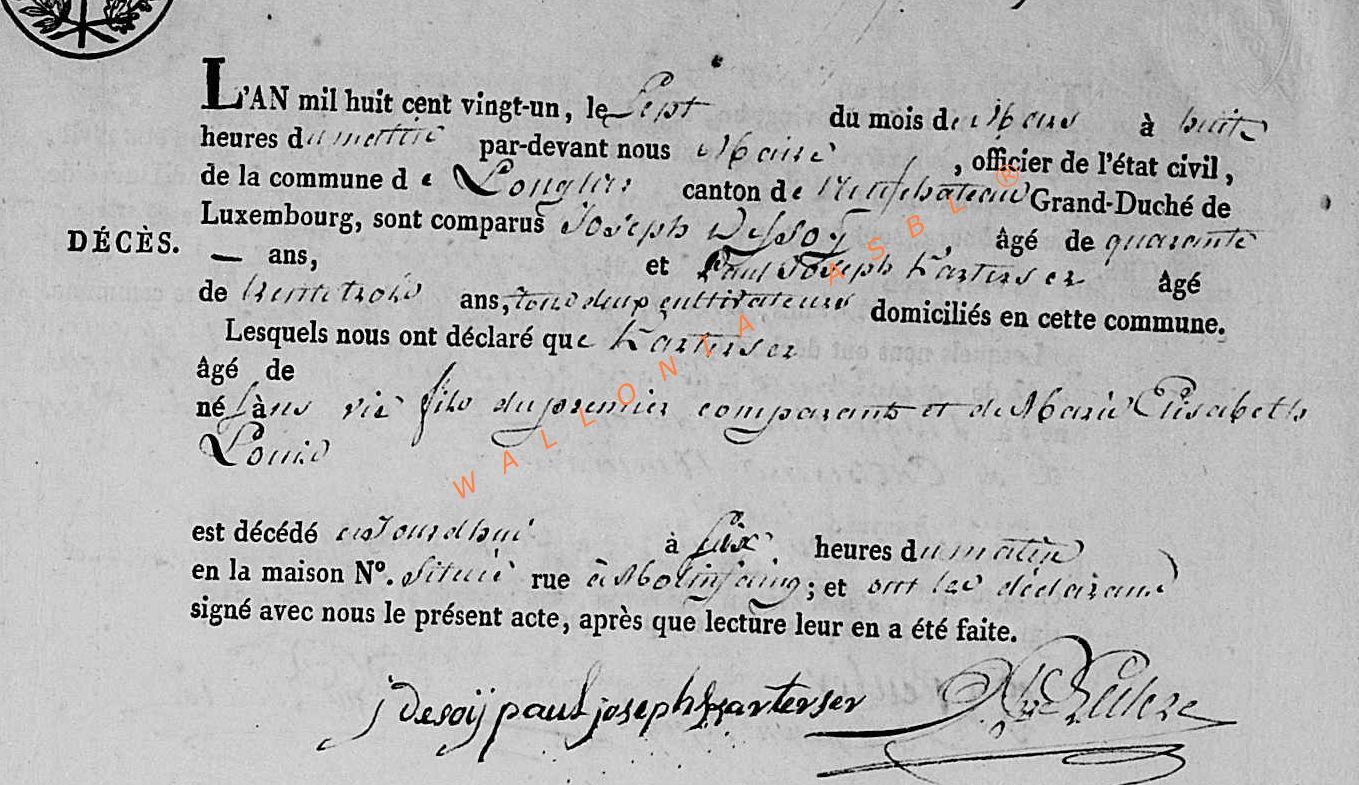 L'AN mil huit cent vingt-un, le Sept du mois de Mars à huit
heures du mattin par-devant nous Maire, officier de l'état civil,
de la commune de Longlier canton de Neufchateau Grand-Duché de
Luxembourg, sont comparus Joseph Dessoy, âgé de quarante
DÉCÈS.
— ans, et Paul Joseph Karteser âgé
de trente trois ans, tous deux cultivateurs domiciliés en cette commune.
Lesquels nous ont déclaré que
âgé de
né sans vie fils du premier comparant et de Marie Elisabeth
Louis
est décédé aujourdhui à six heures du matin
en la maison N°. située rue à Molinfaing; et ont les déclarans
signé avec nous le présent acte, après que lecture leur en a été faite.
j Desoij paul joseph
WALLONIA ASBL ®